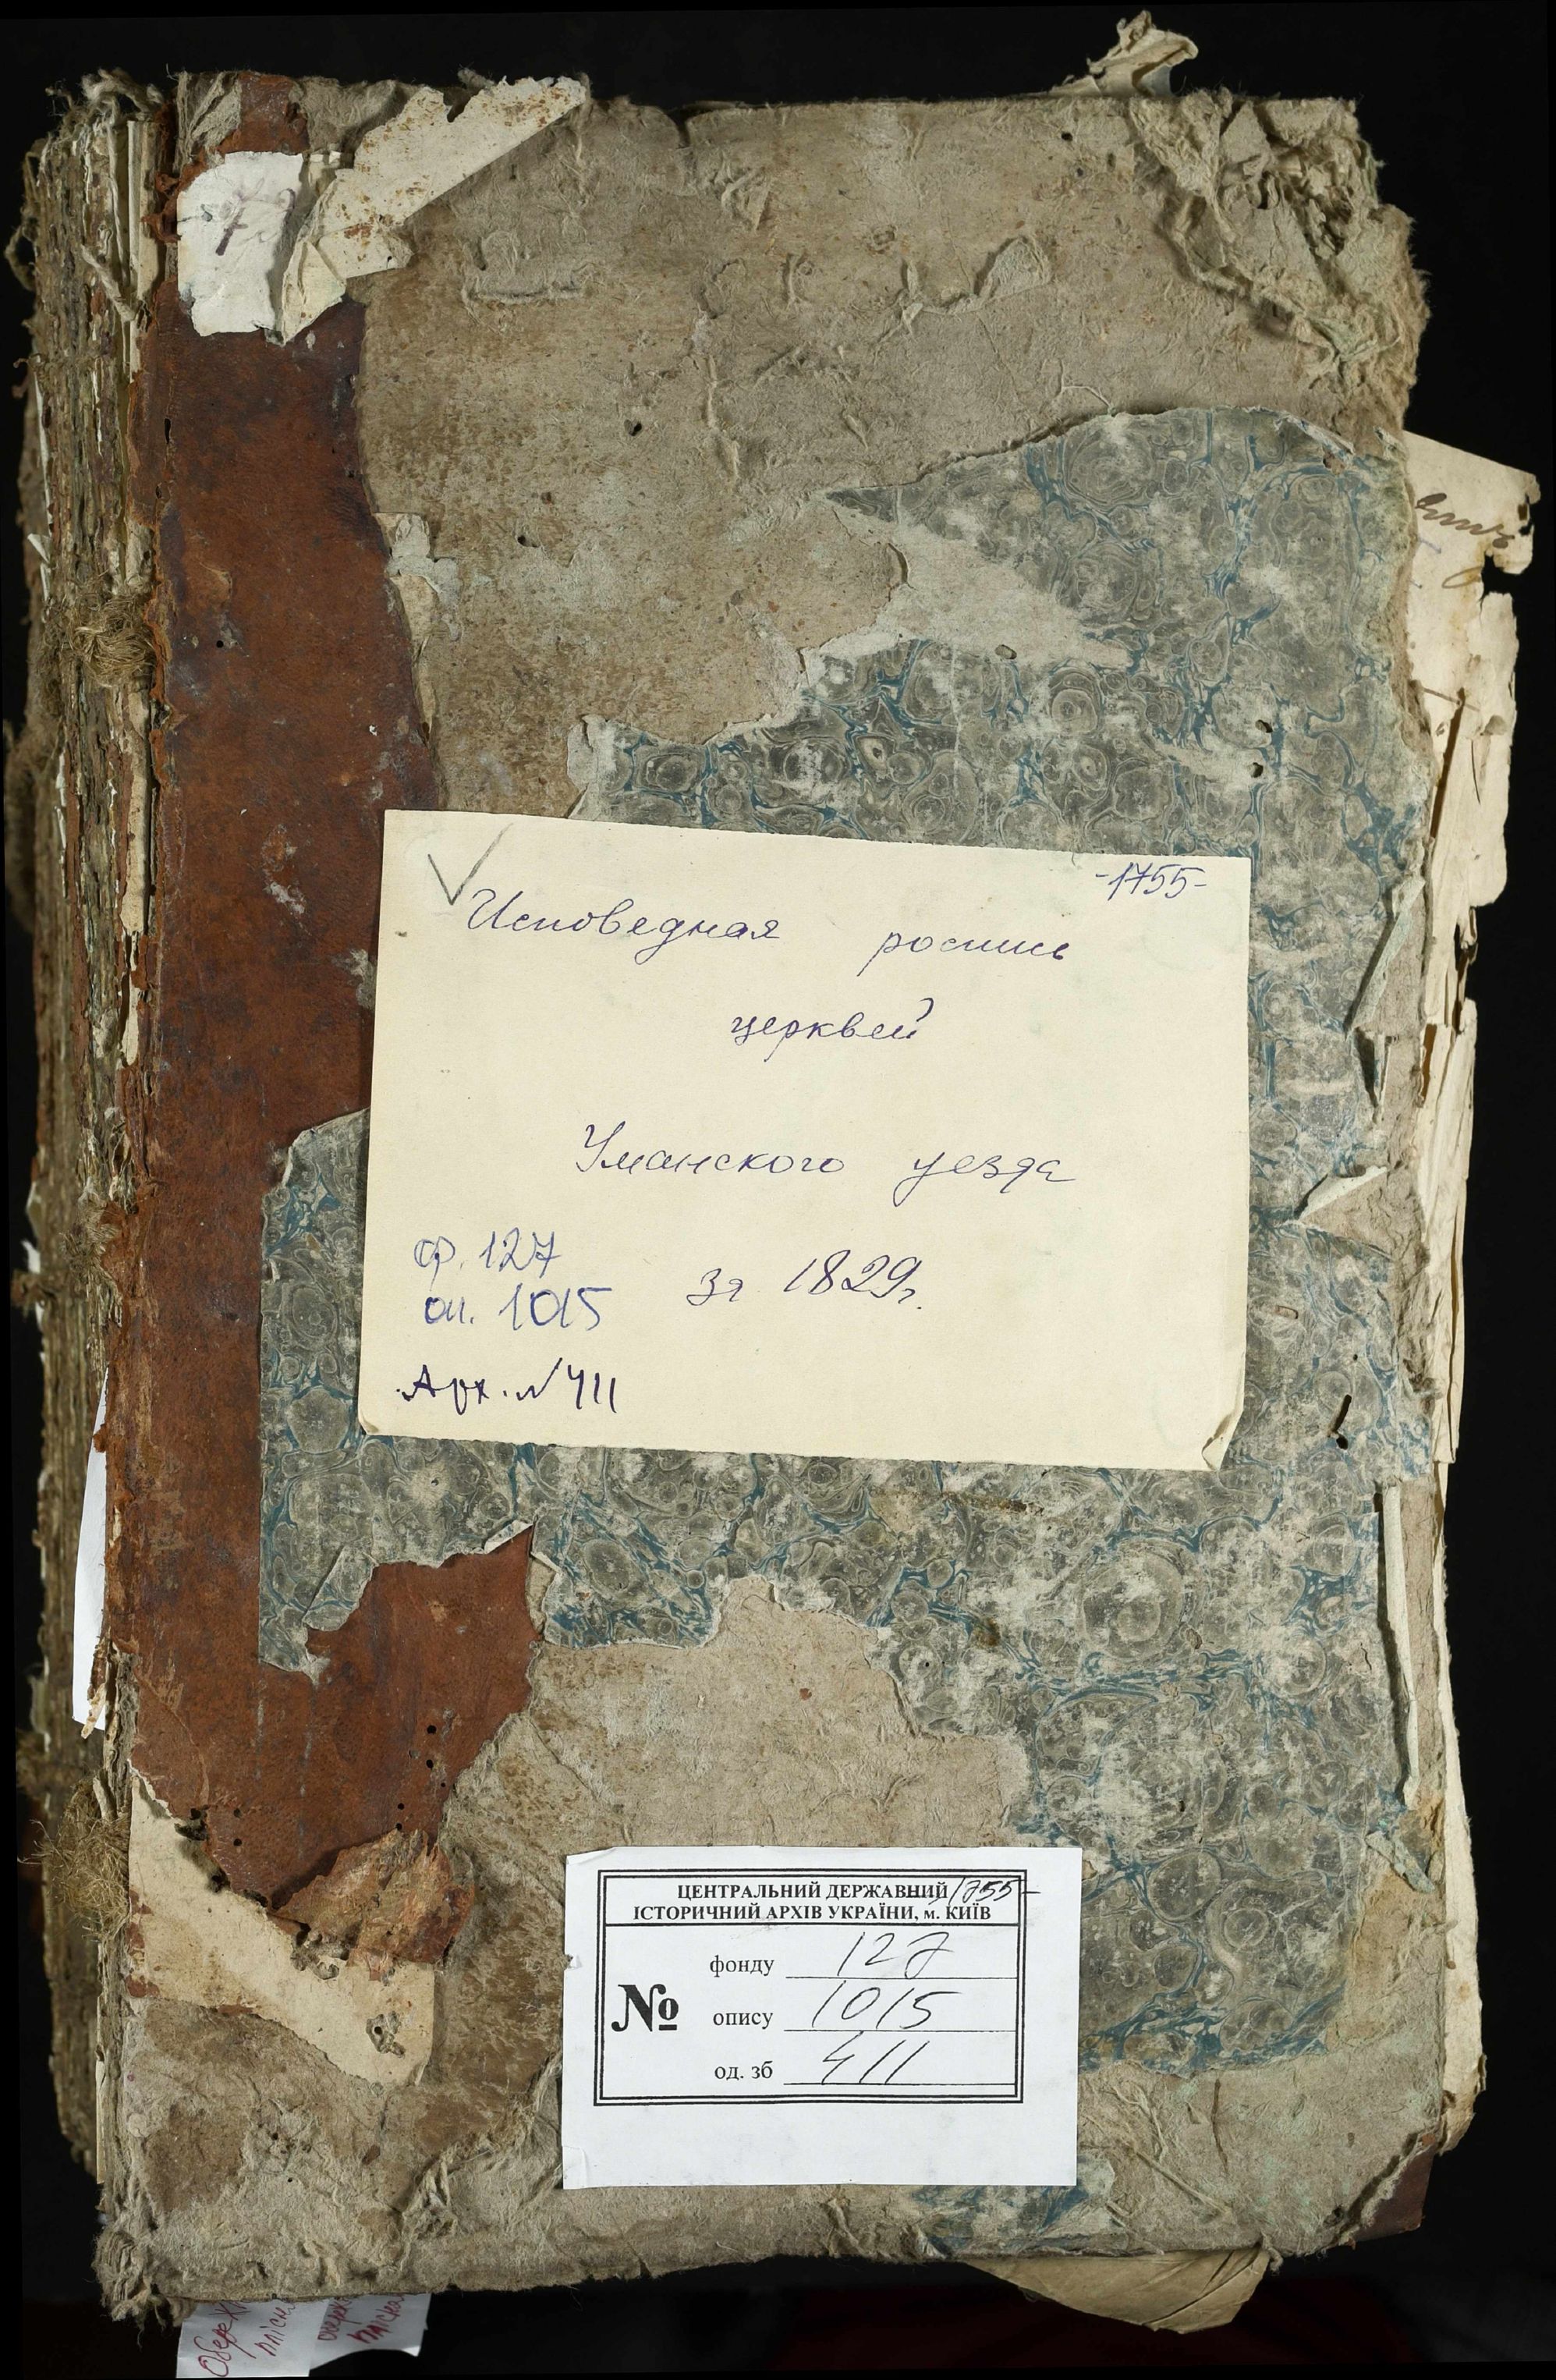 -1755-
Исповедная роспись
церквей
Уманского уезда
ф. 127
за 1829г.
оп. 1015
Арх. №411
ЦЕНТРАЛЬНИЙ ДЕРЖАВНИЙ -1755-
ІСТОРИЧНИЙ АРХІВ УКРАЇНИ, м. КИЇВ
фонду 127
№ опису 1015
од. зб 411